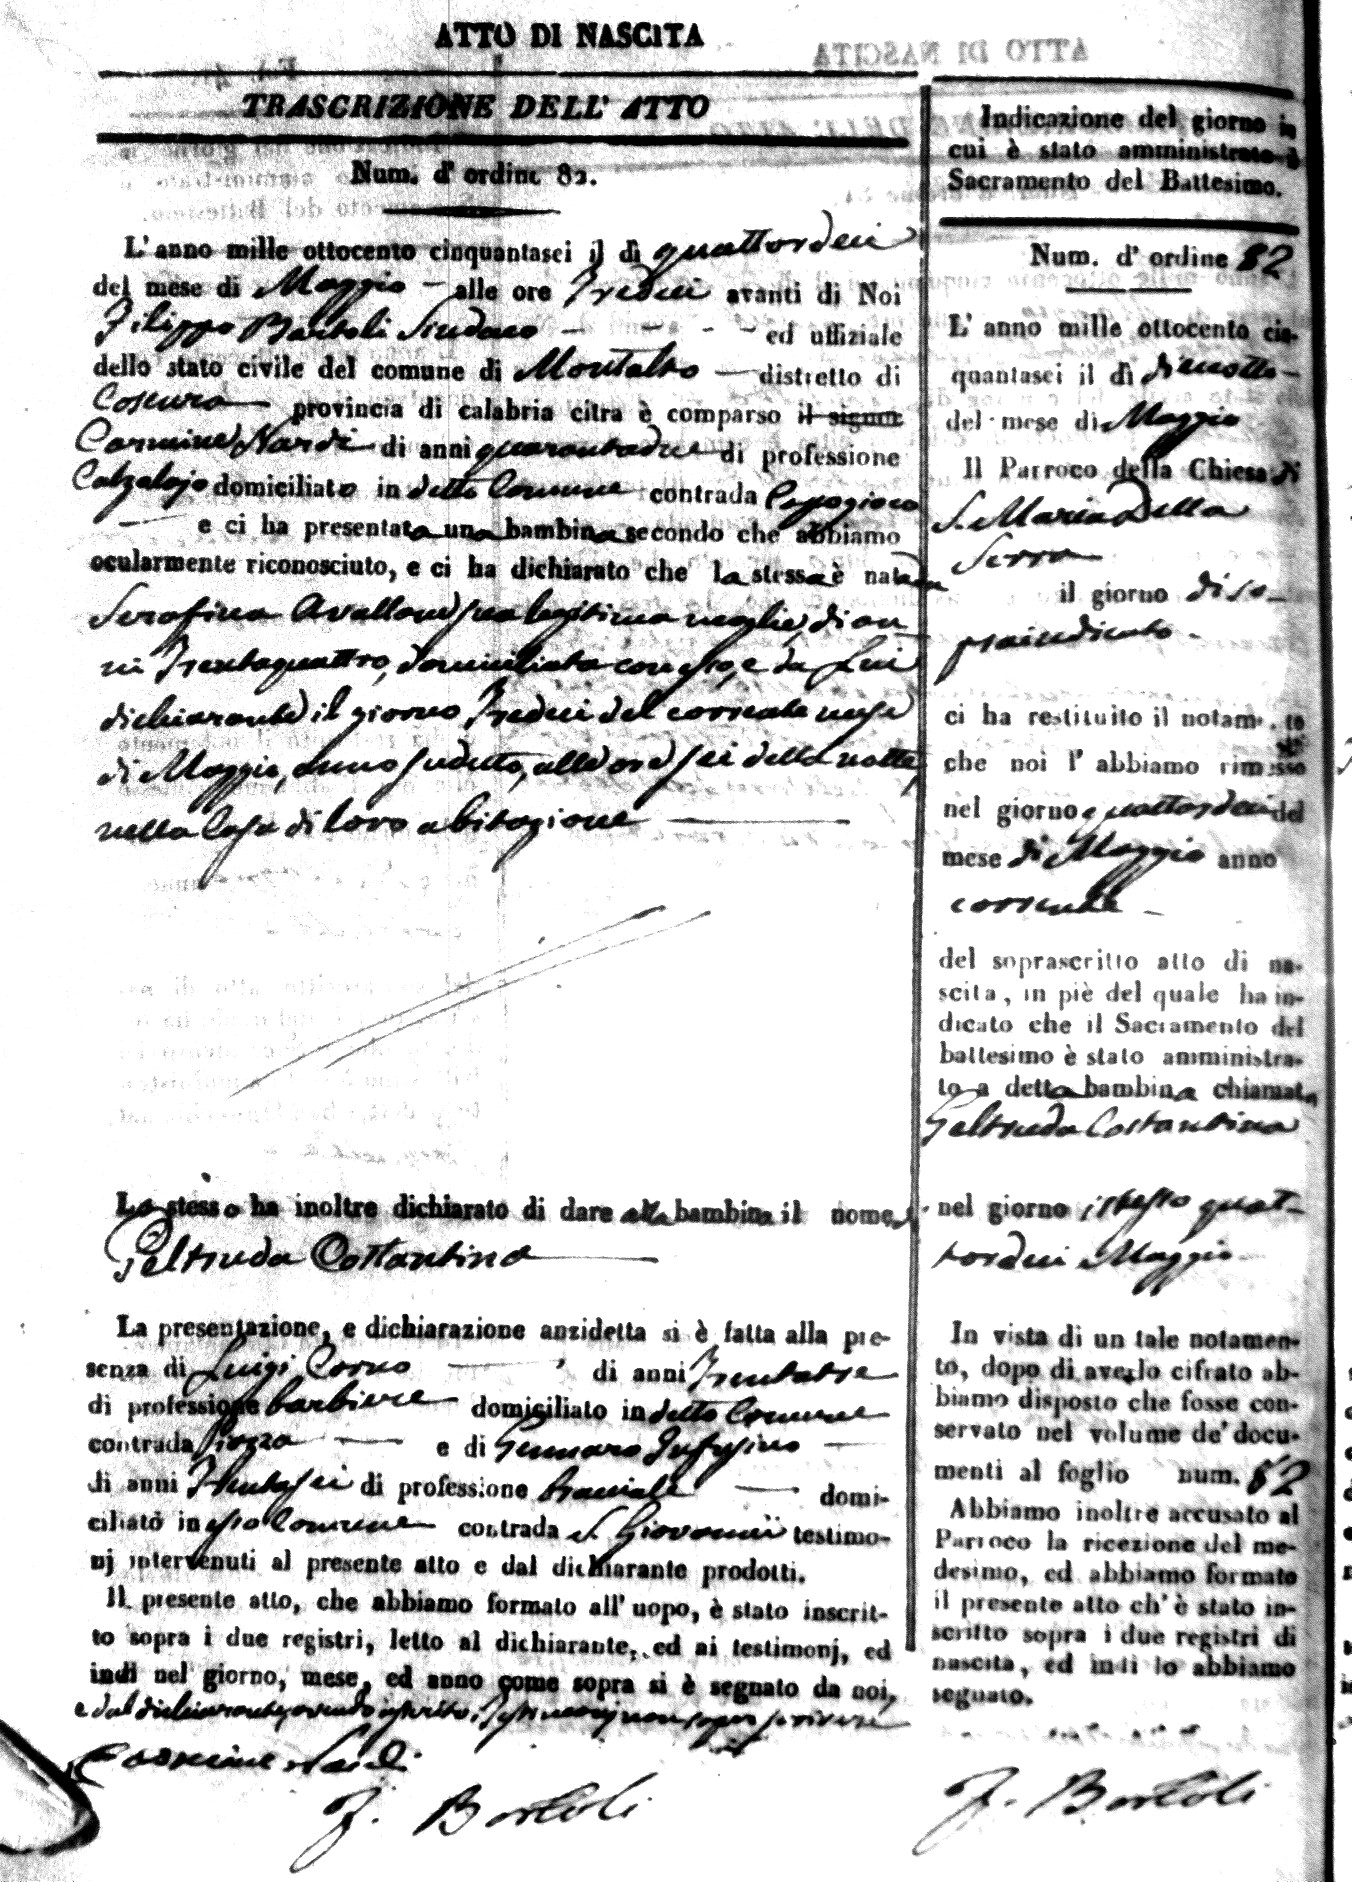 ATTO DI NASCITA
TRASCRIZIONE DELL' ATTO
Num. d' ordine 82.
L' anno mille ottocento cinquantasei il dì quattordeci
del mese di Maggio alle ore Tredeci avanti di Noi
Filippo Bartoli Sindaco ed uffiziale
dello stato civile del comune di Montalto distretto di
Cosenza provincia di calabria citra è comparso il signor
Carmine Nardi di anni quarantadue di professione
Calzalajo domiciliato in detto Comune contrada
e ci ha presentata una bambina secondo che abbiamo
ocularmente riconosciuto, e ci ha dichiarato che la stessa è nata da
Serafina Avallone sua legitima moglie, di an
ni Trentaquattro, domiciliata con esso, e da Lui
dichiarante il giorno Tredeci del corrente mese
di Maggio, anno sudetto, alle ore sei della notte,
nella Casa di loro abitazione
Lo stesso ha inoltre dichiarato di dare alla bambina il nome di
Geltruda Costantina
La presentazione, e dichiarazione anzidetta si è fatta alla pre-
senza di Luigi di anni Trentatre
di professione barbiere domiciliato in detto Comune
contrada Piazza e di Gennaro
di anni Trentasei di professione bracciale domi-
ciliato in esso Comune contrada S. Giovanni testimo-
nj intervenuti al presente atto e dal dichiarante prodotti.
Il presente atto, che abbiamo formato all' uopo, è stato inscrit-
to sopra i due registri, letto al dichiarante, ed ai testimonj, ed
indi nel giorno, mese, ed anno come sopra si è segnato da noi,
e dal dichiarante, avendo i testimonj non saper scrivere
Carmine Nardi
F. Bartoli
Indicazione del giorno in
cui è stato amministrato il
Sacramento del Battesimo.
Num. d' ordine 82
L' anno mille ottocento cin-
quantasei il dì diciotto
del mese di Maggio
Il Parroco della Chiesa di
S. Maria Della
Serra
il giorno di so-
praindicato.
ci ha restituito il notamento
che noi l' abbiamo rimesso
nel giorno quattordeci del
mese di Maggio anno
corrente
del soprascritto atto di na-
scita, in piè del quale ha in-
dicato che il Sacramento del
battesimo è stato amministra-
to a detta bambina chiamata
Geltruda Costantina
nel giorno istesso quat-
tordeci Maggio
In vista di un tale notamen-
to, dopo di averlo cifrato ab-
biamo disposto che fosse con-
servato nel volume de' docu-
menti al foglio num. 82
Abbiamo inoltre accusato al
Parroco la ricezione del me-
desimo, ed abbiamo formato
il presente atto ch' è stato in-
scritto sopra i due registri di
nascita, ed indi lo abbiamo
segnato.
F. Bartoli